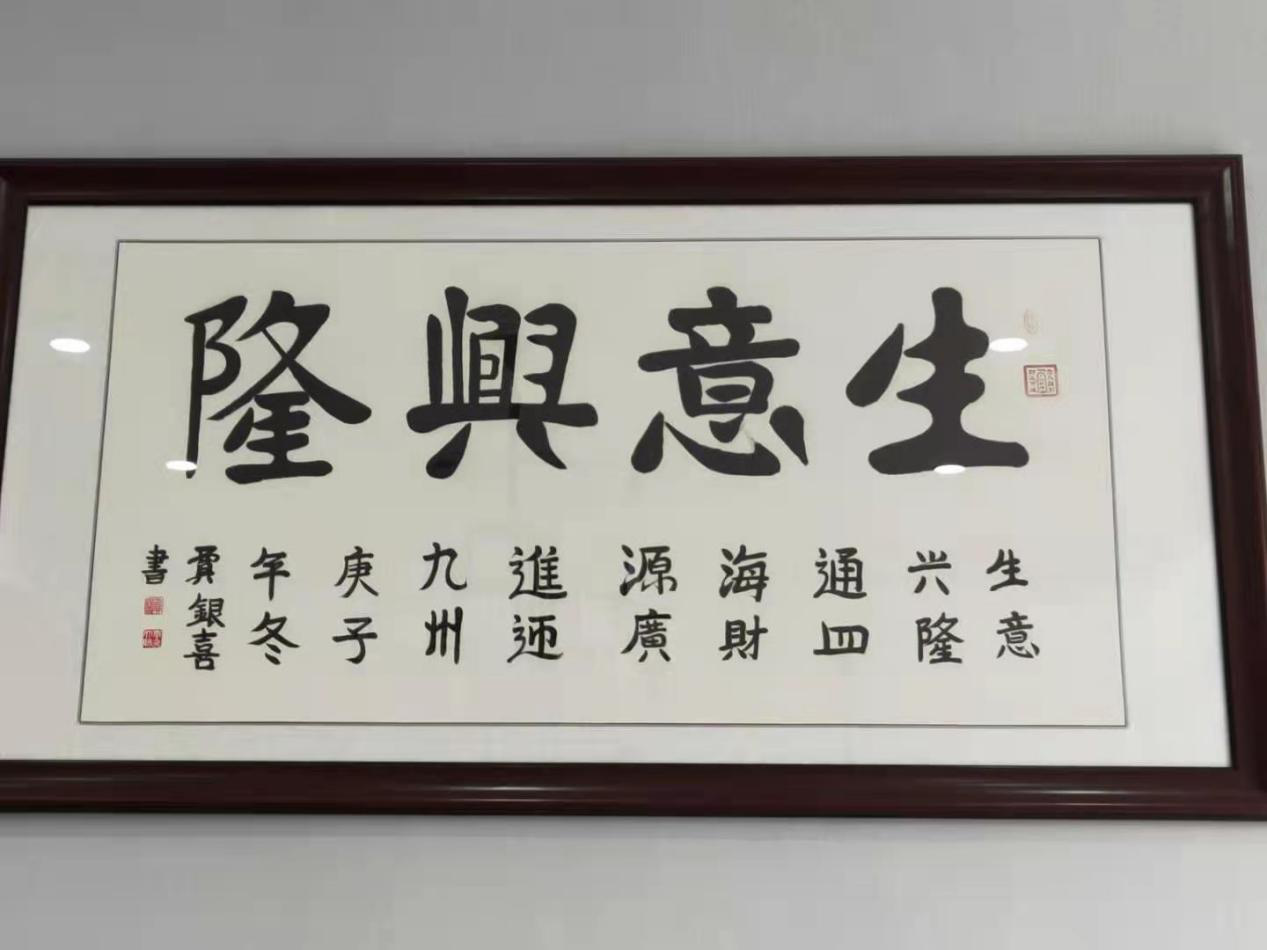 生意興隆
生意
兴隆
通四
海財
源廣
進迊
九州
庚子
年冬
賈銀喜
書